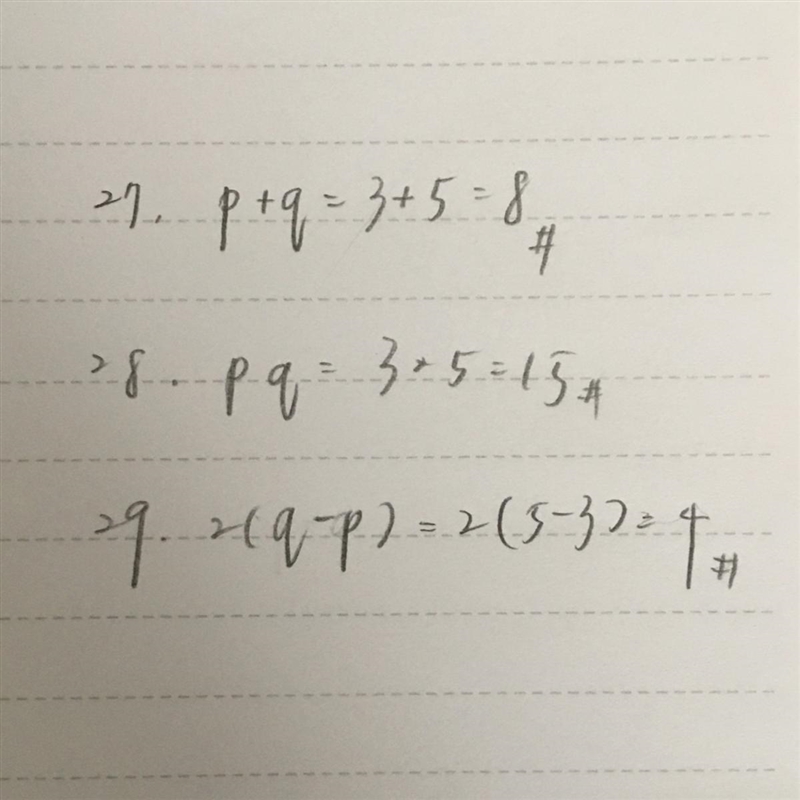 27. p+q = 3+5 = 8 #
28. pq = 3×5 = 15 #
29. 2(q-p) = 2(5-3) = 4 #